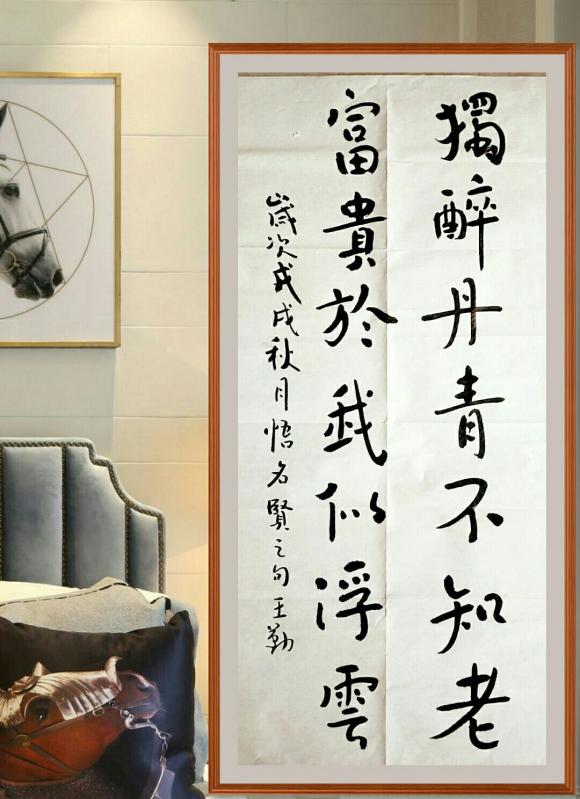 獨醉丹青不知老
富貴於我似浮雲
歲次戊戌秋月悟名賢之句王勤